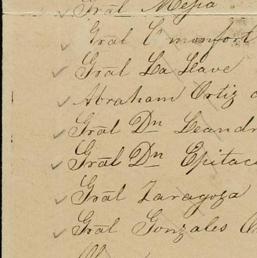 Gral Mejia
Gral C monfort
Gral La Llave
Abraham Ortiz
Gral Dn Leandr
Gral Dn Epitac
Gral Zaragoza
Gral Gonzales